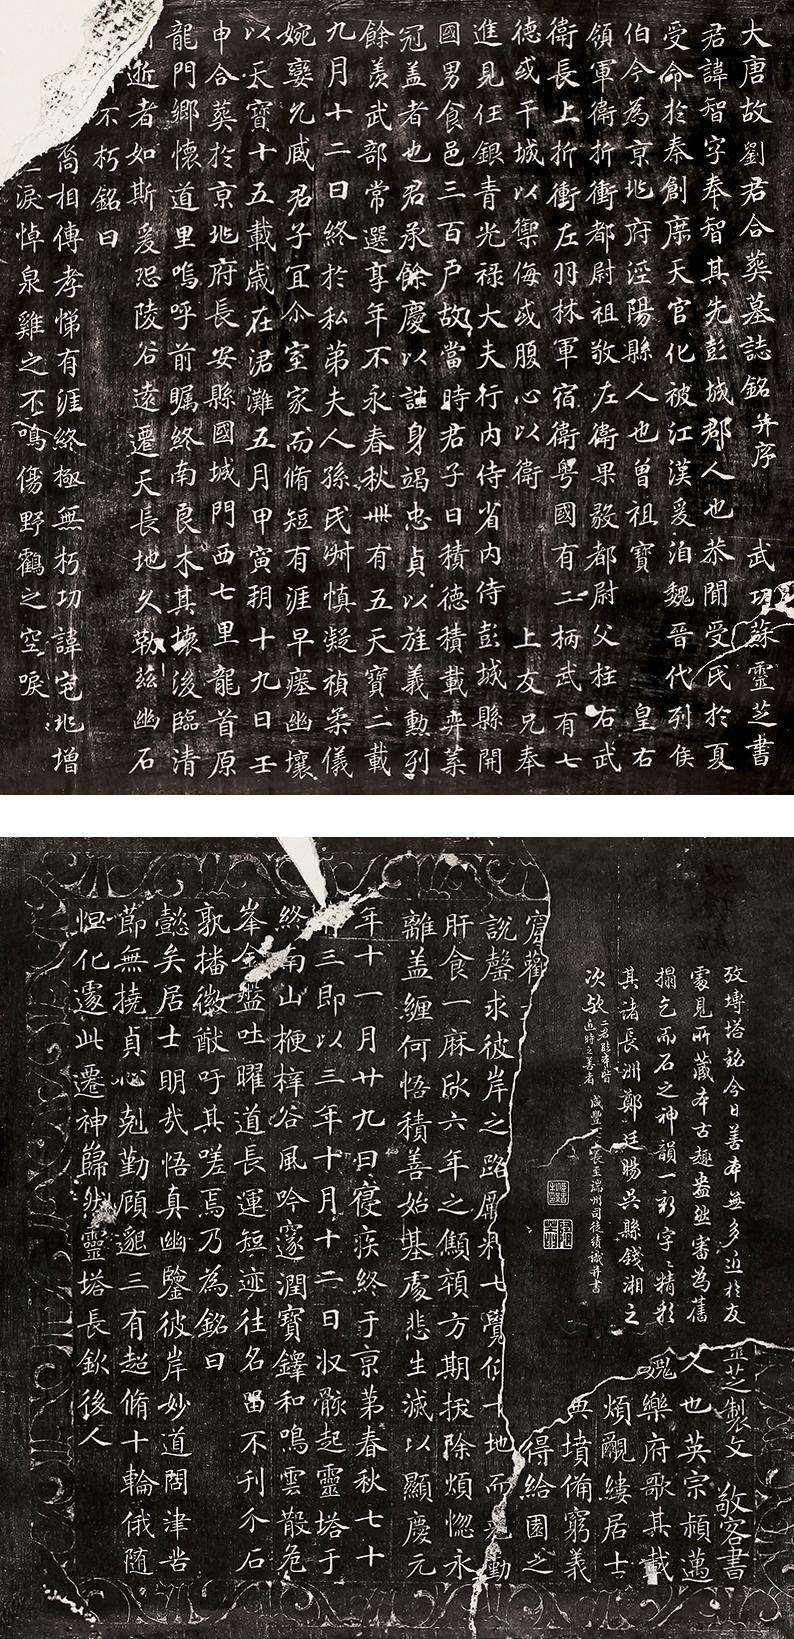 大唐故劉君合葬墓誌銘并序 武功蘇靈芝書
君諱智字奉智其先彭城郡人也恭聞受氏於夏
受命於秦創庶天官化被江漢爰洎魏晉代列侯
伯今為京兆府涇陽縣人也曾祖寶 皇右
領軍衛折衝都尉祖敬左衛果毅都尉父柱右武
衛長上折衝左羽林軍宿衛粵國有二柄武有七
德或干城以禦侮或腹心以衛 上友兄奉
進見任銀青光祿大夫行內侍省內侍彭城縣開
國男食邑三百戶故當時君子曰積德積載弈葉
冠蓋者也君承餘慶以謹身竭忠貞以旌義勳列
餘羨武部常選享年不永春秋卌有五天寶二載
九月十二日終於私第夫人孫氏幽慎凝禎柔儀
婉孌允臧君子宜尒室家而脩短有涯早瘞幽壤
以天寶十五載歲在涒灘五月甲寅朔十九日壬
申合葬於京兆府長安縣國城門西七里龍首原
龍門鄉懷道里嗚呼前矚終南良木其壞後臨清
逝者如斯爰恐陵谷遠遷天長地久勒茲幽石
不朽銘曰
喬相傳孝悌有涯終極無朽功諱宅兆增
淚悼泉雞之不鳴傷野鶴之空唳
攷塼塔銘今日善本無多近於友
處見所藏本古趣盎然審為舊
搨乞而石之神韻一新字字精彩
其諸長洲鄭廷暘吳縣錢湘之
次歟二君臨本皆近時之善者 咸豐 至端州司徒績識并書
靈芝製文 敬客書
人也英宗穎邁
樂府歌其載
煩覼縷居士
典墳備窮義
得給園之
窅歡
說罄求彼岸之路屬想七覺仰十地而克勤
肝食一麻欣六年之顦顇方期拔除煩惚永
離蓋纏何悟積善始基處悲生滅以顯慶元
年十一月廿九日寑疾終于京第春秋七十
三即以三年十月十二日収骸起靈塔于
終南山楩梓谷風吟邃澗寶鐸和鳴雲散危
峯金盤吐曜道長運短迹往名留不刊介石
孰播徽猷吁其嗟焉乃為銘曰
懿矣居士明哉悟真幽鑒彼岸妙道問津苦
節無撓貞心剋勤顧邈三有超脩十輪俄隨
怛化遽此遷神歸然靈塔長欽後人